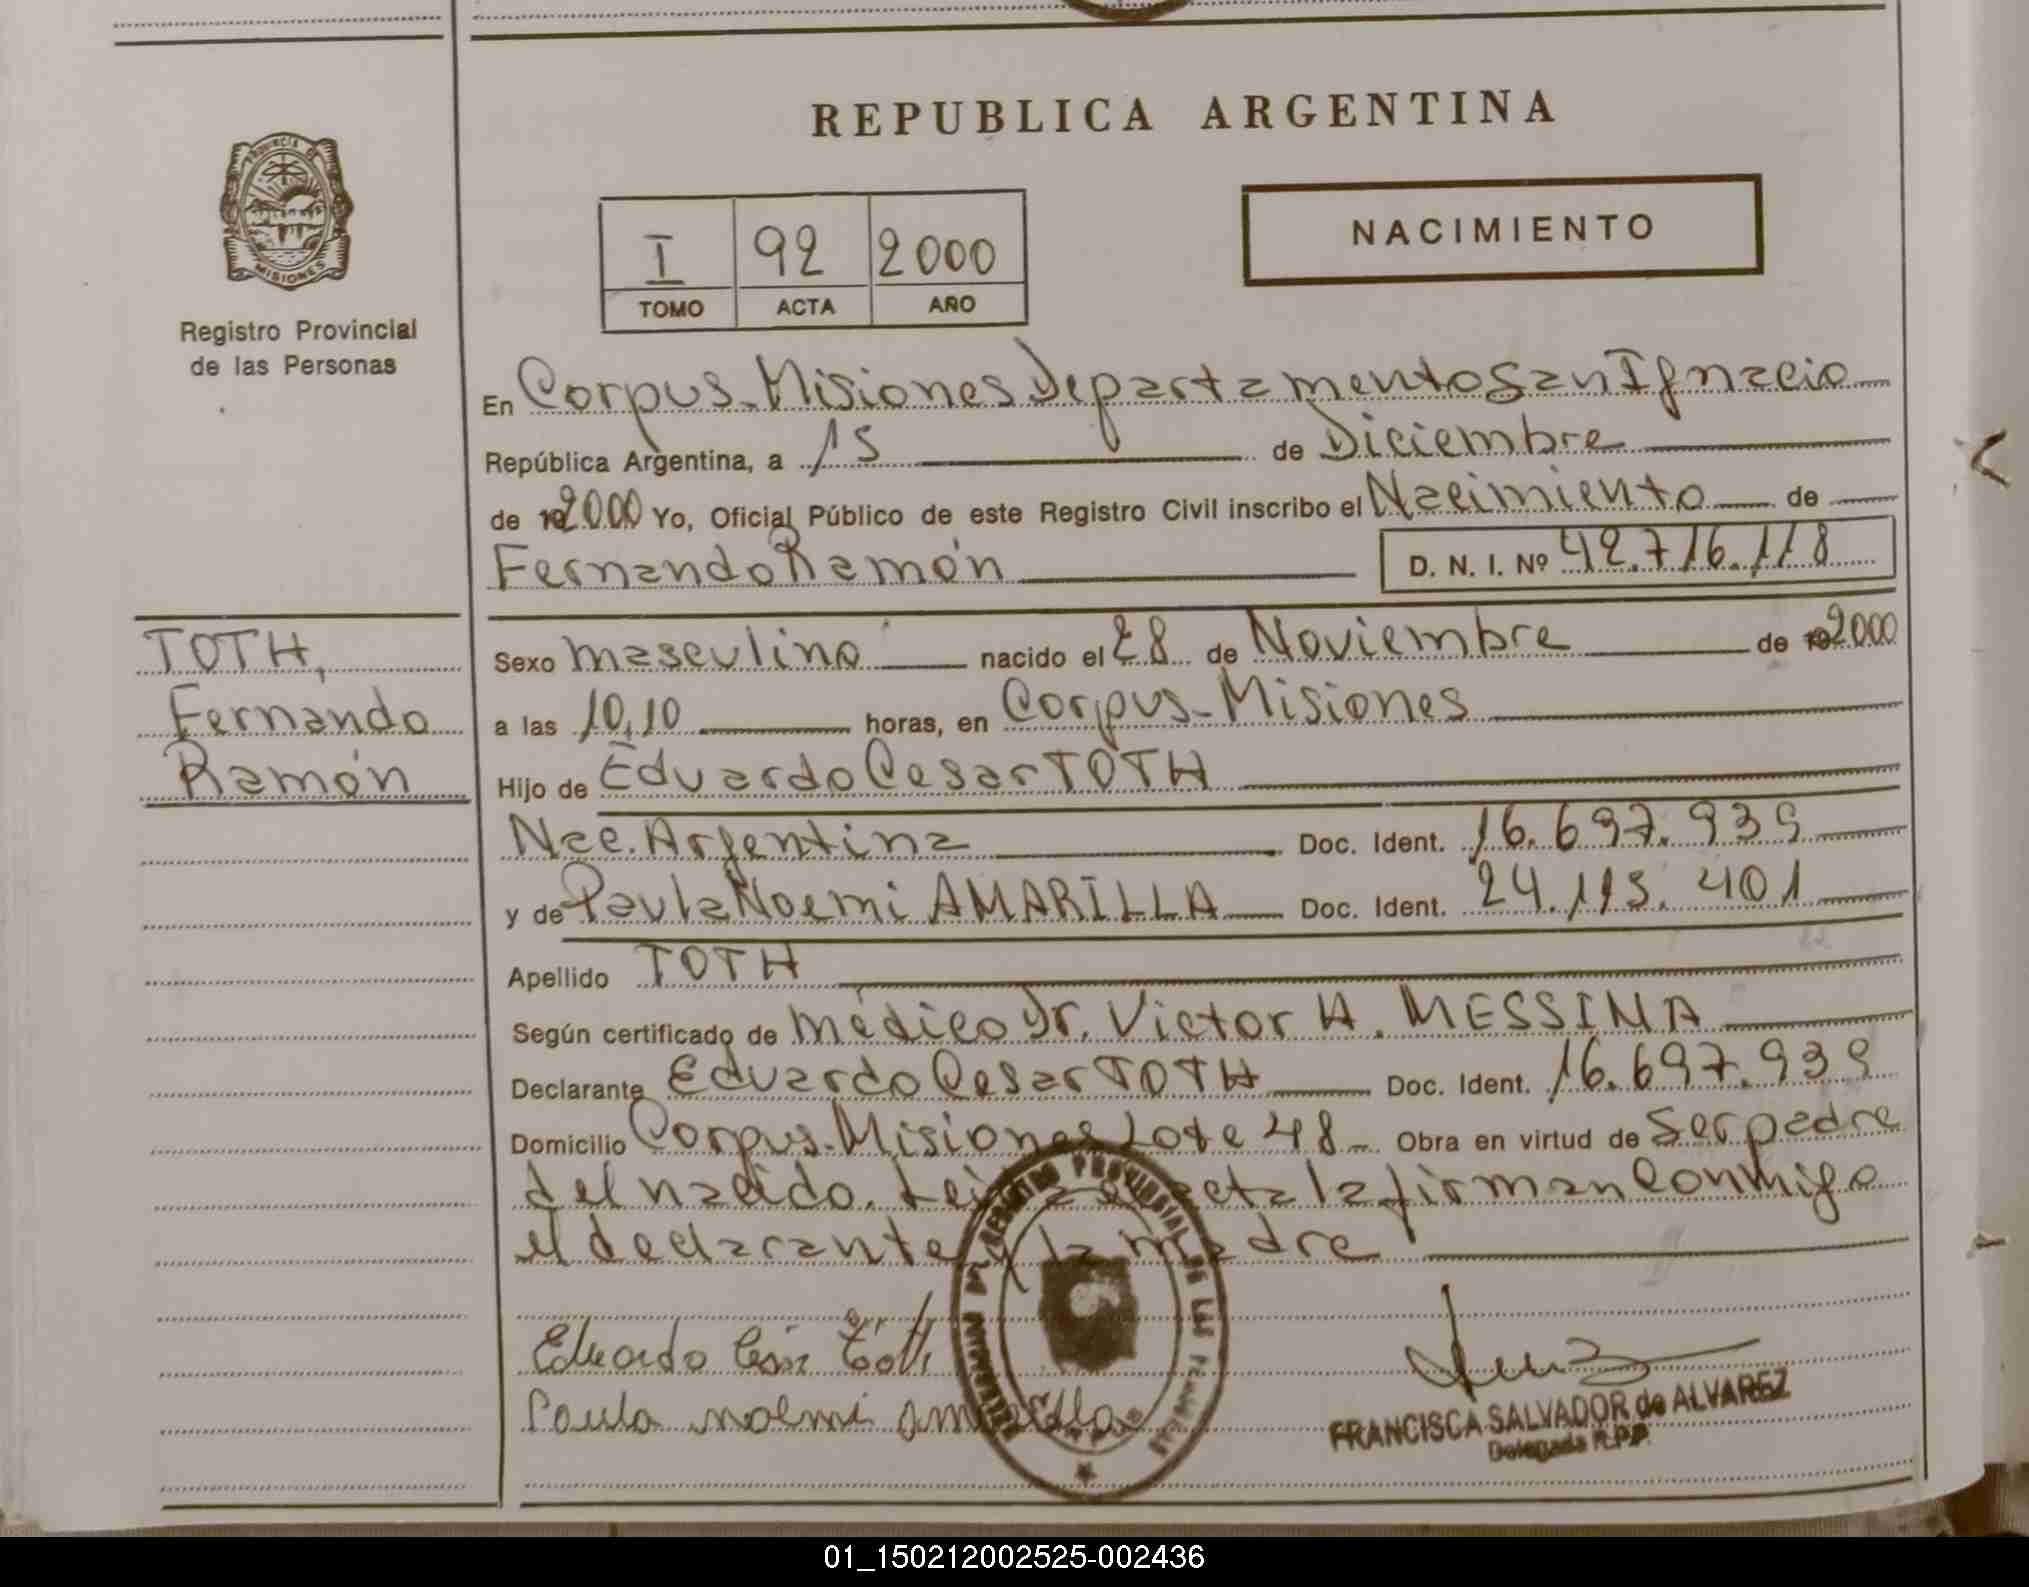 REPUBLICA ARGENTINA
PROVINCIA DE
MISIONES
Registro Provincial
de las Personas
I 92 2000
TOMO ACTA AÑO
NACIMIENTO
En Corpus-Misiones Departamento San Ignacio
República Argentina, a 15 de Diciembre
de 2000 Yo, Oficial Público de este Registro Civil inscribo el Nacimiento de
Fernando Ramón D. N. I. Nº 42.716.118
TOTH,
Fernando
Ramón
Sexo masculino nacido el 28 de Noviembre de 2000
a las 10,10 horas, en Corpus-Misiones
Hijo de Eduardo Cesar TOTH
Nac. Argentina Doc. Ident. 16.697.939
y de Paula Noemi AMARILLA Doc. Ident. 24.115.401
Apellido TOTH
Según certificado de médico Dr. Victor H. MESSINA
Declarante Eduardo Cesar TOTH Doc. Ident. 16.697.939
Domicilio Corpus-Misiones Lote 48- Obra en virtud de ser padre
del nacido. Leida el acta la firman Conmigo
el declarante y la madre
REGISTRO PROVINCIAL DE LAS
Eduardo César Toth
Paula noemi amarilla
FRANCISCA SALVADOR de ALVAREZ
Delegada R.P.P.
01_150212002525-002436